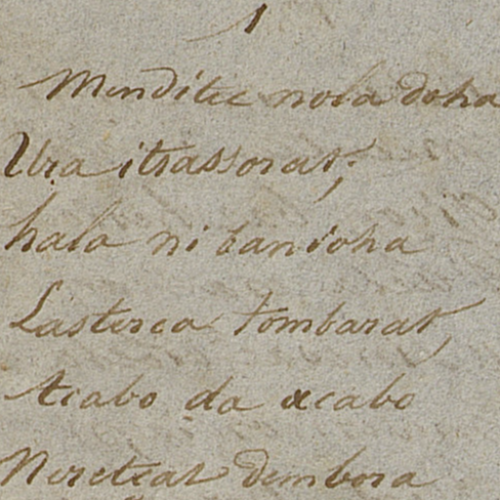 1
Menditic nola doha
Ura itsassorat;
hala ni banioha
Lasterca Tombarat,
Acabo da acabo
Neretçat dembora